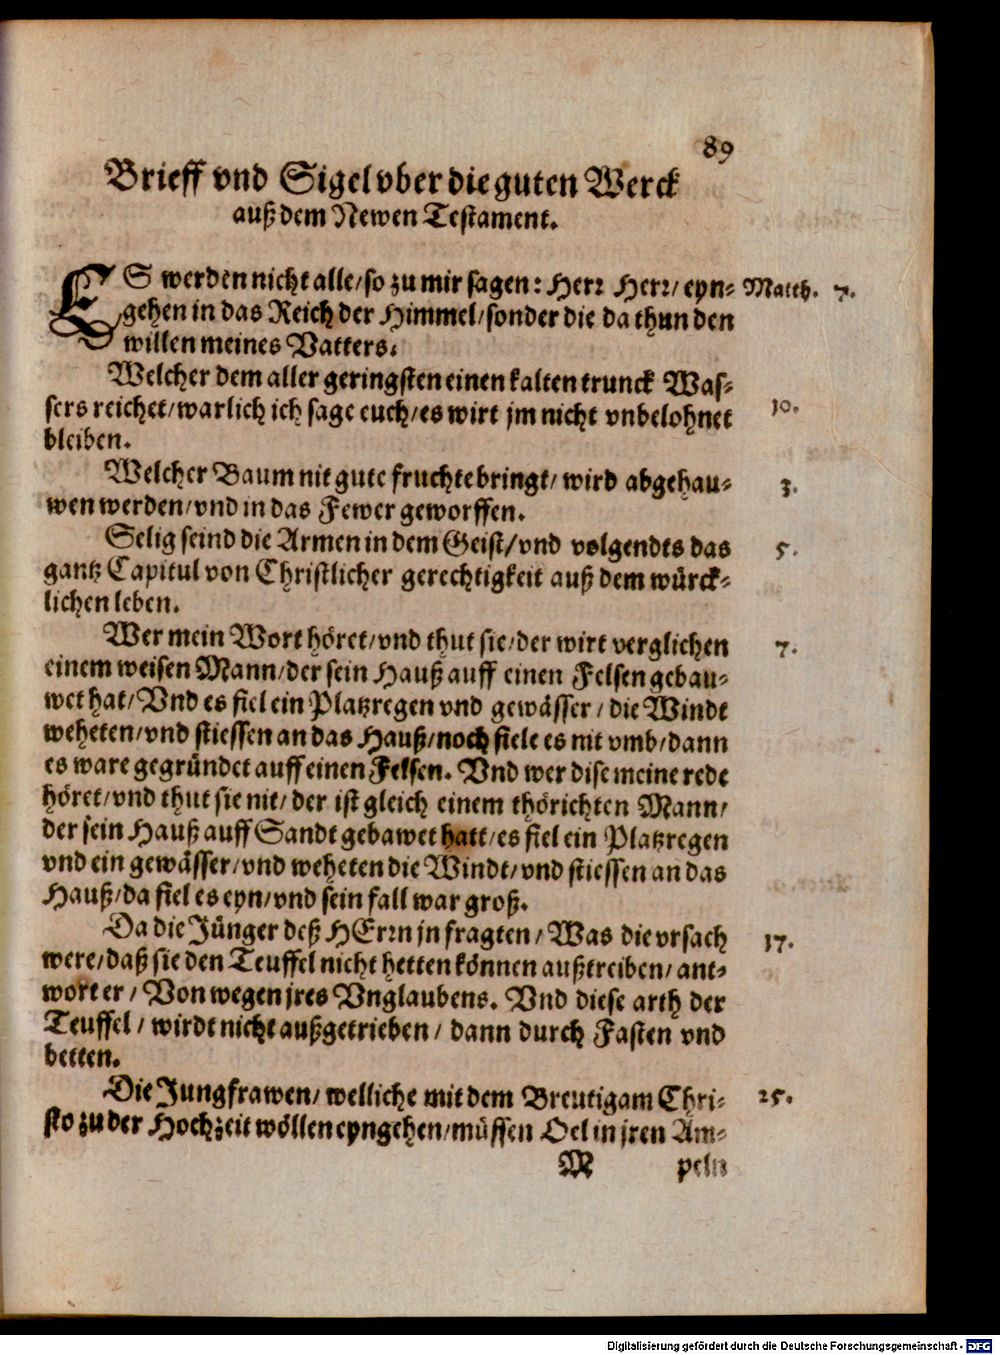 89
Brieff vnd Sigel vber die guten Werck
auß dem Newen Testament.
ES werden nicht alle/so zu mir sagen: Herr Herr/ eyn= Matth. 7.
gehen in das Reich der Himmel/sonder die da thun den
willen meines Vatters.
Welcher dem aller geringsten einen kalten trunck Was=
sers reichet/warlich ich sage euch/es wirt jm nicht vnbelohnet 10.
bleiben.
Welcher Baum nit gute fruchte bringt/ wird abgehau= 3.
wen werden/vnd in das Fewer geworffen.
Selig seind die Armen in dem Geist/vnd volgendts das 5.
gantz Capitul von Christlicher gerechtigkeit auß dem würck=
lichen leben.
Wer mein Wort höret/vnd thut sie/der wirt verglichen 7.
einem weisen Mann/der sein Hauß auff einen Felsen gebau=
wet hat/Vnd es fiel ein Platzregen vnd gewässer/die Windt
weheten/vnd stiessen an das Hauß/noch fiele es nit vmb/dann
es ware gegründet auff einen Felsen. Vnd wer dise meine rede
höret/vnd thut sie nit/ der ist gleich einem thörichten Mann/
der sein Hauß auff Sandt gebawet hatt/es fiel ein Platzregen
vnd ein gewässer/vnd weheten die Windt/vnd stiessen an das
Hauß/da fiel es eyn/vnd sein fall war groß.
Da die Jünger deß HErrn jn fragten/ Was die vrsach 17.
were/daß sie den Teuffel nicht hetten können außtreiben/ ant=
wort er/ Von wegen jres Vnglaubens. Vnd diese arth der
Teuffel/ wirdt nicht außgetrieben/ dann durch Fasten vnd
betten.
Die Jungfrawen/ welliche mit dem Breutigam Chri= 25.
sto zu der Hochzeit wöllen eyngehen/müssen Oel in jren Am=
M peln
Digitalisierung gefördert durch die Deutsche Forschungsgemeinschaft - DFG